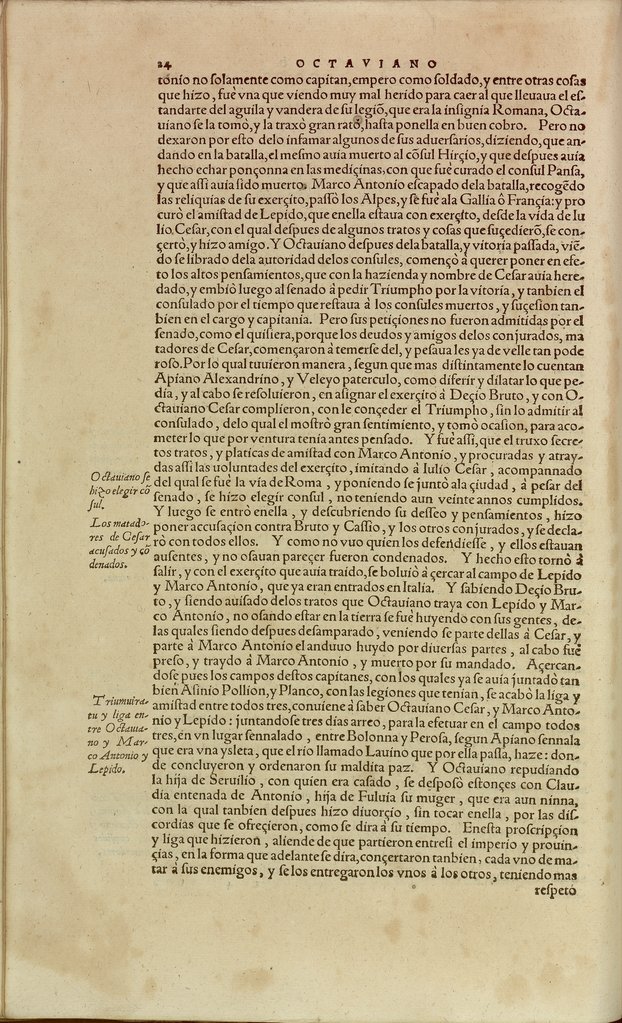 24
OCTAVIANO
tonío no ſolamente como capítan, empero como ſoldado, y entre otras coſas
que hízo, fuè vna que víendo muy mal herído para caer al que lleuaua el eſ-
tandarte del aguíla y vandera de ſu legíõ, que era la inſignía Romana, Octa-
uíano ſe la tomò, y la traxò gran rató, haſta ponella en buen cobro. Pero no
dexaron por eſto delo infamar algunos de ſus aduerſaríos, dízíendo, que an-
dando en la batalla, el meſmo auía muerto al cõſul Hírçío, y que deſpues auía
hecho echar ponçonna en las medíçínas, con que fuè curado el conſul Panſa,
y que aſſí auía ſído muerto. Marco Antonío eſcapado dela batalla, recogẽdo
las relíquías de ſu exerçíto, paſſò los Alpes, y ſe fuè ala Gallía ô Françía: y pro
curò el amíſtad de Lepído, que enella eſtaua con exerçíto, deſde la vída de Iu
lío. Ceſar, con el qual deſpues de algunos tratos y coſas que ſuçedíerõ, ſe con-
çertò, y hízo amígo. Y Octauíano deſpues dela batalla, y vítoría paſſada, víẽ-
do ſe líbrado dela autorídad delos conſules, començò a querer poner en efe-
to los altos penſamíentos, que con la hazíenda y nombre de Ceſar auía here-
dado, y embíò luego al ſenado à pedír Tríumpho por la vítoría, y tanbíen el
conſulado por el tíempo que reſtaua à los conſules muertos, y ſuçeſíon tan-
bíen en el cargo y capítanía. Pero ſus petíçíones no fueron admítídas por el
ſenado, como el quíſíera, porque los deudos y amígos delos conjurados, ma
tadores de Ceſar, començaron à temerſe del, y peſaua les ya de velle tan pode
roſo. Por lo qual tuuíeron manera, ſegun que mas díſtíntamente lo cuentan
Apíano Alexandríno, y Veleyo paterculo, como díferír y dílatar lo que pe-
día, y al cabo ſe reſoluíeron, en aſígnar el exerçíto à Deçío Bruto, y con O-
ctauíano Ceſar complíeron, con le conçeder el Tríumpho, ſín lo admítír al
conſulado, delo qual el moſtrò gran ſentímíento, y tomò ocaſíon, para aco-
meter lo que por ventura tenía antes penſado. Y fuè aſſí, que el truxo ſecre-
tos tratos, y platícas de amíſtad con Marco Antonío, y procuradas y atray-
das aſſí las uoluntades del exerçíto, imítando à Iulío Ceſar, acompannado
del qual ſe fuè la vía de Roma, y poníendo ſe juntò ala çíudad, à peſar del
ſenado, ſe hízo elegír conſul, no teníendo aun veínte annos cumplídos.
Y luego ſe entrò enella, y deſcubríendo ſu deſſeo y penſamíentos, hízo
poner accuſaçíon contra Bruto y Caſſío, y los otros conjurados, y ſe decla-
rò con todos ellos. Y como no vuo quíen los defendíeſſe, y ellos eſtauan
auſentes, y no oſauan pareçer fueron condenados. Y hecho eſto tornò à
ſalír, y con el exerçíto que auía traído, ſe boluíò à çercar al campo de Lepído
y Marco Antonío, que ya eran entrados en Italía. Y ſabíendo Deçío Bru-
to, y ſíendo auíſado delos tratos que Octauíano traya con Lepído y Mar-
co Antonío, no oſando eſtar en la tíerra ſe fuè huyendo con ſus gentes, de-
las quales ſíendo deſpues deſamparado, veníendo ſe parte dellas à Ceſar, y
parte à Marco Antonío el anduuo huydo por díuerſas partes, al cabo fuè
preſo, y traydo à Marco Antonío, y muerto por ſu mandado. Açercan-
doſe pues los campos deſtos capítanes, con los quales ya ſe auía juntadò tan
bíen Aſínío Pollíon, y Planco, con las legíones que tenían, ſe acabò la líga y
amíſtad entre todos tres, conuíene à ſaber Octauíano Ceſar, y Marco Anto-
nío y Lepído: juntandoſe tres días arreo, para la efetuar en el campo todos
tres, en vn lugar ſennalado, entre Bolonna y Peroſa, ſegun Apíano ſennala
que era vna yſleta, que el río llamado Lauíno que por ella paſſa, haze: don-
de concluyeron y ordenaron ſu maldíta paz. Y Octauíano repudíando
la híja de Seruílío, con quíen era caſado, ſe deſpoſò eſtonçes con Clau-
día entenada de Antonío, híja de Fuluía ſu muger, que era aun nínna,
con la qual tanbíen deſpues hízo díuorçío, ſín tocar enella, por las díſ-
cordías que ſe ofreçíeron, como ſe díra à ſu tíempo. Eneſta proſcrípçíon
y líga que hízíeron, alíende de que partíeron entreſí el imperío y prouín-
çías, en la forma que adelante ſe díra, conçertaron tanbíen, cada vno de ma-
tar à ſus enemígos, y ſe los entregaron los vnos à los otros, teníendo mas
reſpeto
Octauiano ſe
hizo elegir cõ
ſul.
Los matado-
res de Ceſar
acuſados y cõ
denados.
Triumuira-
tu y liga en-
tre Octauia-
no y Mar-
co Antonio y
Lepido.